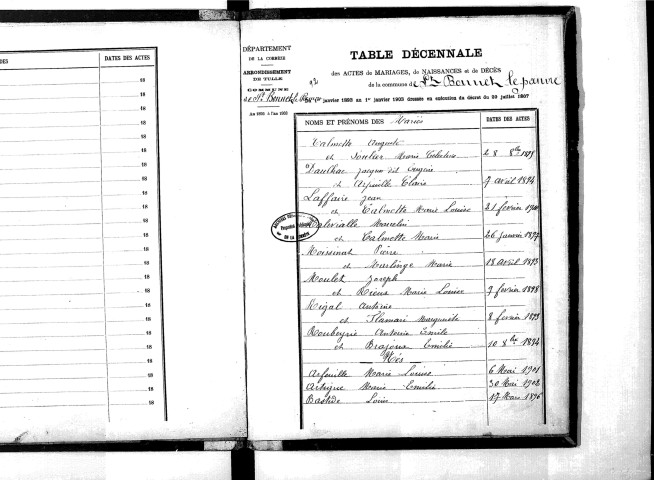 DATES DES ACTES
18
18
18
18
18
18
18
18
18
18
18
18
18
18
18
18
18
18
18
18
18
18
18
DÉPARTEMENT
DE LA CORRÈZE
ARRONDISSEMENT
DE TULLE
COMMUNE
de St Bonnet le Pauvre
An 1893 à l'an 1903
TABLE DÉCENNALE
des ACTES de MARIAGES, de NAISSANCES et de DÉCÈS
de la commune de St Bonnet le pauvre
du 1er janvier 1893 au 1er janvier 1903 dressée en exécution du décret du 20 juillet 1807
NOMS ET PRÉNOMS DES Mariés
DATES DES ACTES
Calmette Auguste
et Soulier Marie 28 8bre
Daulhac Jacques dit Eugène
et Arfeuille Claire 7 avril 1894
Laffaire Jean
et Calmette Marie Louise 21 février
Marcelin
et Calmette Marie 26 janvier 1897
Moissinat Pierre
et Marie 18 avril 1893
Moulet Joseph
et Rieux Marie Louise 9 février 1898
Rigal Antoine
et Marguerite 8 février 1893
Roubeyrie Antoine Emile
et Brajoux Emilie 10 8bre 1894
Nés
Arfeuille Marie Louise 6 Mai 1901
Artigue Marie Emilie 30 Mai 1902
Bastide Louis 17 Mars 1896